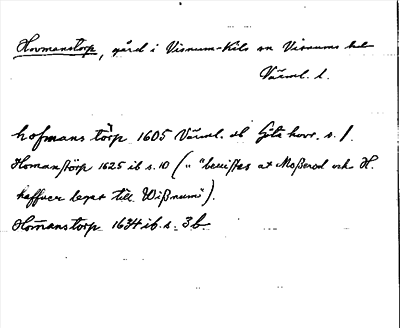 Hovmanstorp, gård i Visnum-Kils sn Visnums hd
Värml. l.
hofmans törp 1605 Värml. hb Göta hovr. s. 1.
Homanstörp 1625 ib s. 10 ("" beviistes at Moßerod och H.
haffver leget till Wißnum").
Homanstorp 1634 ib. s. 3b.